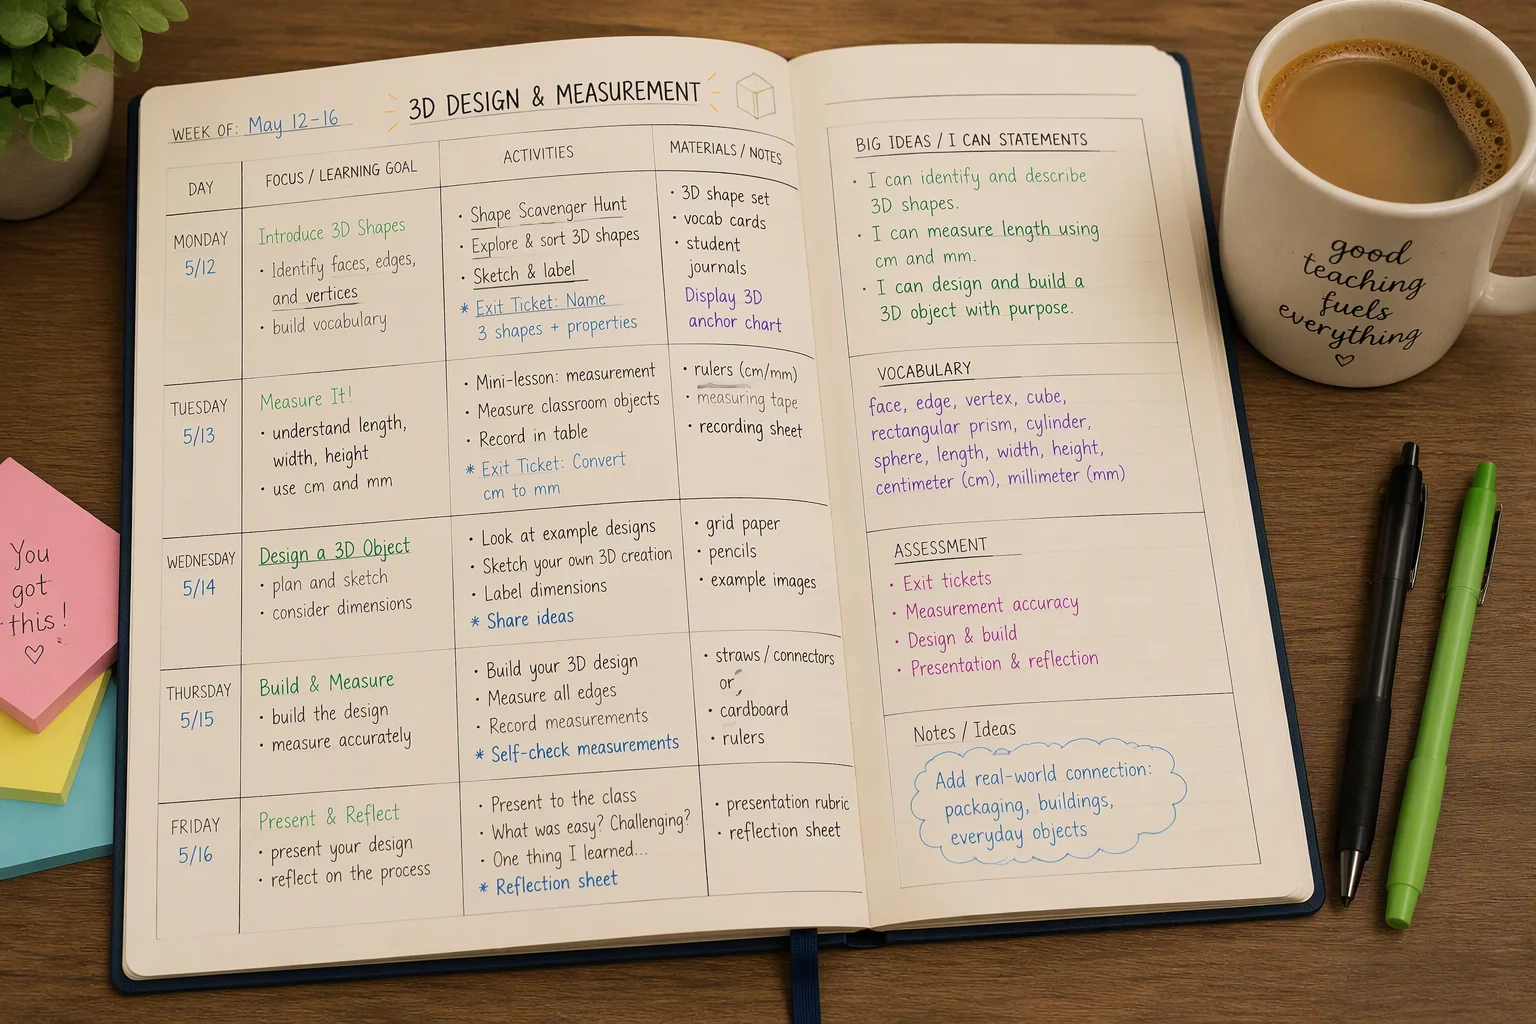 WEEK OF: May 12-16
3D DESIGN & MEASUREMENT
DAY
FOCUS / LEARNING GOAL
ACTIVITIES
MATERIALS / NOTES
MONDAY
5/12
Introduce 3D Shapes
• Identify faces, edges,
and vertices
• build vocabulary
• Shape Scavenger Hunt
• Explore & sort 3D shapes
• Sketch & label
* Exit Ticket: Name
3 shapes + properties
• 3D shape set
• vocab cards
• student
journals
Display 3D
anchor chart
TUESDAY
5/13
Measure It!
• understand length,
width, height
• use cm and mm
• Mini-lesson: measurement
• Measure classroom objects
• Record in table
* Exit Ticket: Convert
cm to mm
• rulers (cm/mm)
• measuring tape
• recording sheet
WEDNESDAY
5/14
Design a 3D Object
• plan and sketch
• consider dimensions
• Look at example designs
• Sketch your own 3D creation
• Label dimensions
* Share ideas
• grid paper
• pencils
• example images
THURSDAY
5/15
Build & Measure
• build the design
• measure accurately
• Build your 3D design
• Measure all edges
• Record measurements
* Self-check measurements
• straws / connectors
or
• cardboard
• rulers
FRIDAY
5/16
Present & Reflect
• present your design
• reflect on the process
• Present to the class
• What was easy? Challenging?
• One thing I learned...
* Reflection sheet
• presentation rubric
• reflection sheet
BIG IDEAS / I CAN STATEMENTS
• I can identify and describe
3D shapes.
• I can measure length using
cm and mm.
• I can design and build a
3D object with purpose.
VOCABULARY
face, edge, vertex, cube,
rectangular prism, cylinder,
sphere, length, width, height,
centimeter (cm), millimeter (mm)
ASSESSMENT
• Exit tickets
• Measurement accuracy
• Design & build
• Presentation & reflection
Notes / Ideas
Add real-world connection:
packaging, buildings,
everyday objects
You
got
this!
good
teaching
fuels
everything